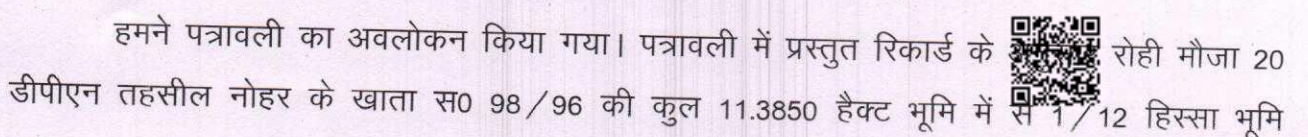 हमने पत्रावली का अवलोकन किया गया। पत्रावली में प्रस्तुत रिकार्ड के रोही मौजा 20
डीपीएन तहसील नोहर के खाता स0 98/96 की कुल 11.3850 हैक्ट भूमि में से 1/12 हिस्सा भूमि